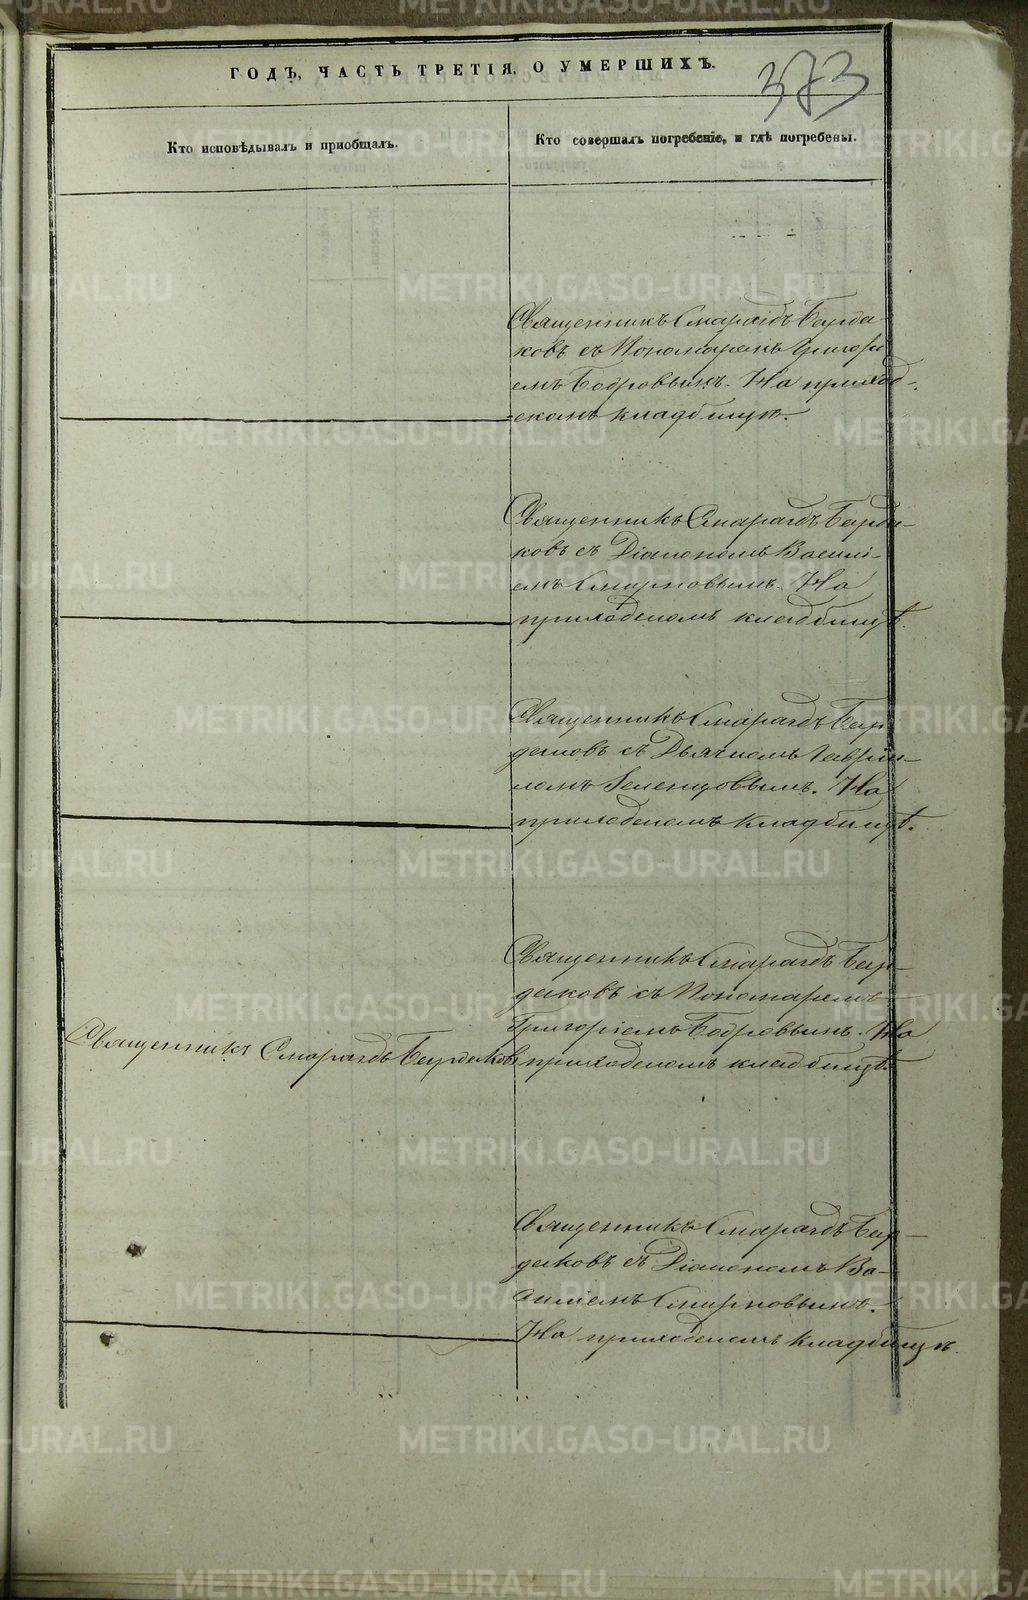 ГОДЪ, ЧАСТЬ ТРЕТІЯ, О УМЕРШИХЪ.
373
Кто исповѣдывалъ и пріобщалъ.
Кто совершалъ погребеніе, и гдѣ погребены.
Священникъ Смарагдъ Бурда-
ковъ съ Пономаремъ Григорі
емъ Бобровымъ. На приход-
скомъ кладбищѣ.
Священникъ Смарагдъ Бурда-
ковъ съ Діакономъ Василі-
емъ Смирновымъ. На
приходскомъ кладбищѣ.
Священникъ Смарагдъ Бур
даковъ съ Дьячкомъ Гаврiи-
ломъ Зеленцовымъ. На
приходскомъ кладбищѣ.
Священникъ Смарагдъ Бурдаковъ
Священникъ Смарагдъ Бур-
даковъ съ Пономаремъ
Григоріемъ Бобровымъ. На
приходскомъ кладбищѣ.
Священникъ Смарагдъ Бур-
даковъ съ Діакономъ Ва-
силіемъ Смирновымъ.
На приходскомъ кладбищѣ.
METRIKI.GASO-URAL.RU